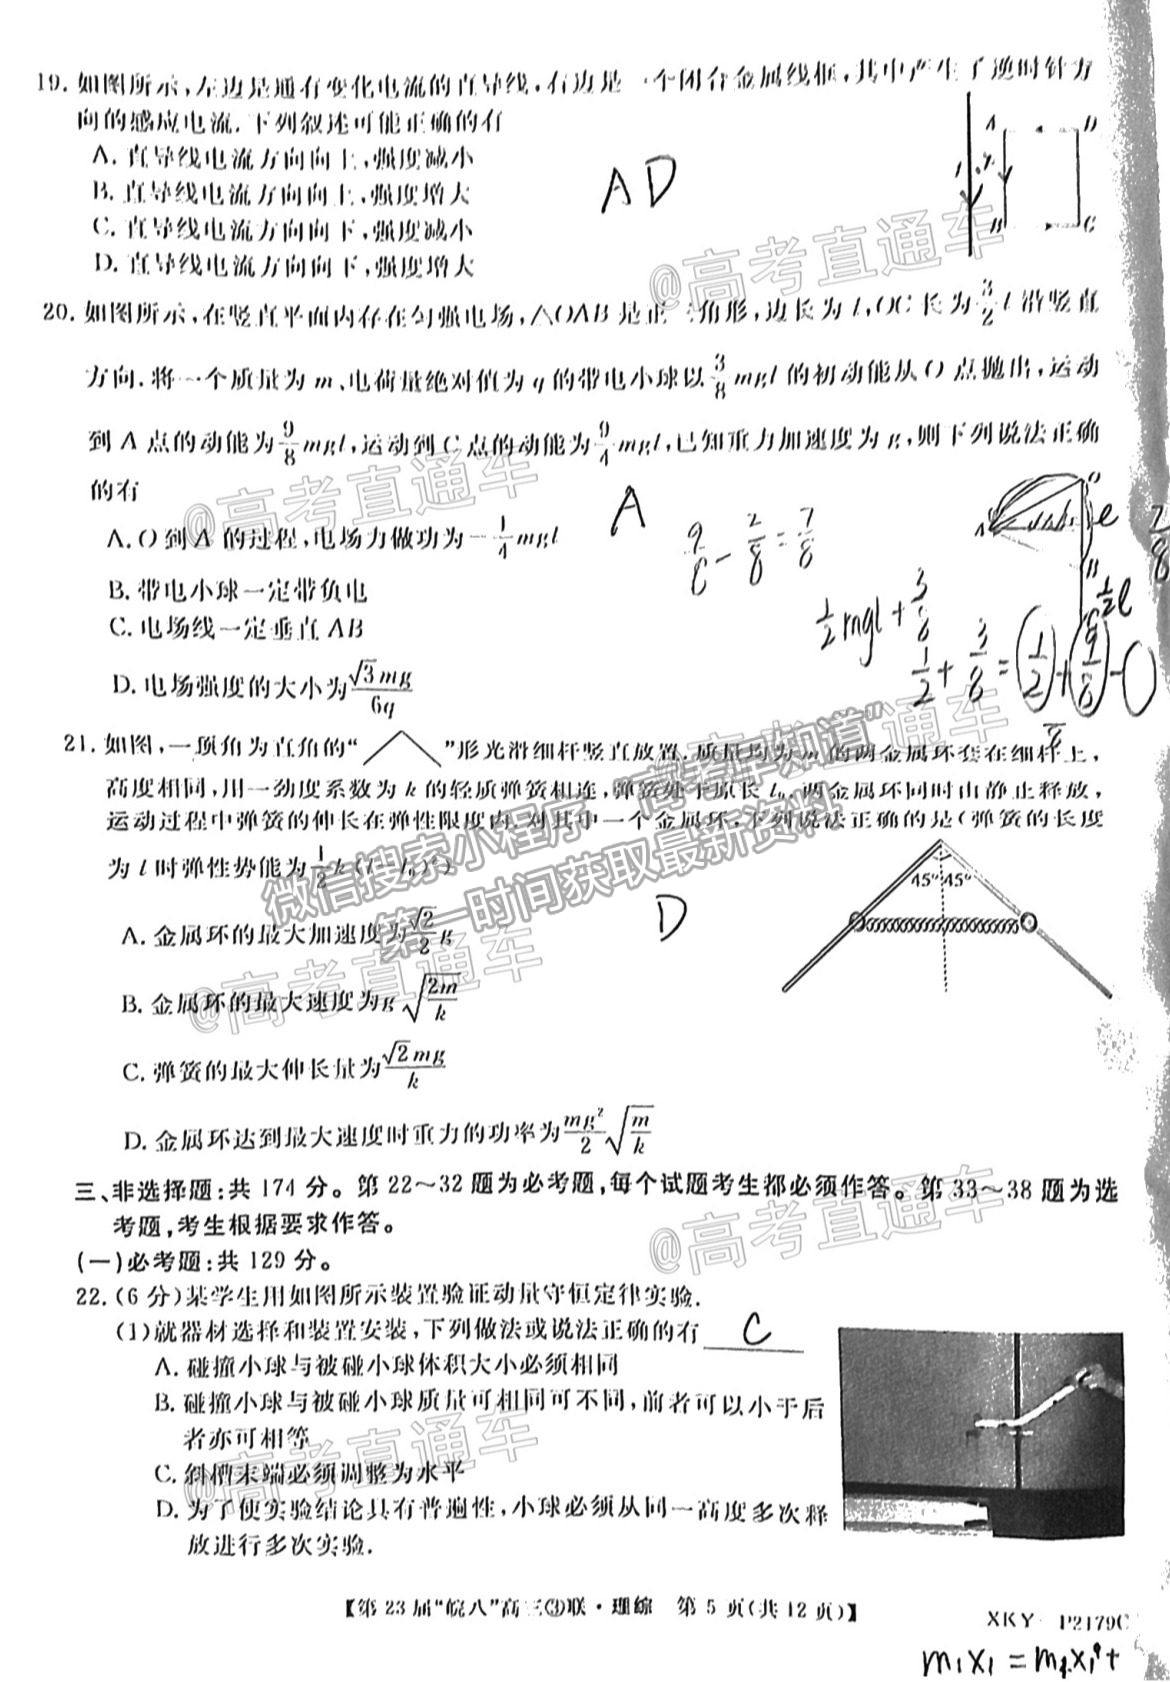 19. 如图所示,左边是通有变化电流的直导线,右边是一个闭合金属线框,其中产生了逆时针方
向的感应电流.下列叙述可能正确的有
A. 直导线电流方向向上,强度减小
B. 直导线电流方向向上,强度增大
C. 直导线电流方向向下,强度减小
D. 直导线电流方向向下,强度增大
AD
A D
B C
20. 如图所示,在竖直平面内存在匀强电场,△OAB是正三角形,边长为l,OC长为3/2 l沿竖直
方向.将一个质量为m、电荷量绝对值为q的带电小球以3/8 mgl的初动能从O点抛出,运动
到A点的动能为9/8 mgl,运动到C点的动能为9/4 mgl,已知重力加速度为g,则下列说法正确
的有
A. O到A的过程,电场力做功为-1/4 mgl
B. 带电小球一定带负电
C. 电场线一定垂直AB
D. 电场强度的大小为√3mg/6q
A
9/8 - 2/8 = 7/8
7/8
1/2 l
1/2 mgl + 3/8
1/2 + 3/8 = (1/2) + (9/8) -
21. 如图,一顶角为直角的“ ”形光滑细杆竖直放置.质量均为m的两金属环套在细杆上,
高度相同,用一劲度系数为k的轻质弹簧相连,弹簧处于原长l₀.两金属环同时由静止释放,
运动过程中弹簧的伸长在弹性限度内.对其中一个金属环,下列说法正确的是(弹簧的长度
为l时弹性势能为1/2 k(l-l₀)²)
A. 金属环的最大加速度为√2/2 g
B. 金属环的最大速度为g√(2m/k)
C. 弹簧的最大伸长量为√2mg/k
D. 金属环达到最大速度时重力的功率为mg²/2 √(m/k)
D
45° 45°
三、非选择题:共174分。第22~32题为必考题,每个试题考生都必须作答。第33~38题为选
考题,考生根据要求作答。
(一)必考题:共129分。
22. (6分)某学生用如图所示装置验证动量守恒定律实验.
(1)就器材选择和装置安装,下列做法或说法正确的有 C
A. 碰撞小球与被碰小球体积大小必须相同
B. 碰撞小球与被碰小球质量可相同可不同,前者可以小于后
者亦可相等
C. 斜槽末端必须调整为水平
D. 为了使实验结论具有普遍性,小球必须从同一高度多次释
放进行多次实验.
【第23届“皖八”高三③联·理综 第5页(共12页)】
XKY P2179C
m₁x₁ = m₁x₁' +
@高考直通车
@高考直通车
@高考直通车
@高考直通车
@高考直通车
@高考直通车
微信搜索小程序“高考早知道”
第一时间获取最新资料